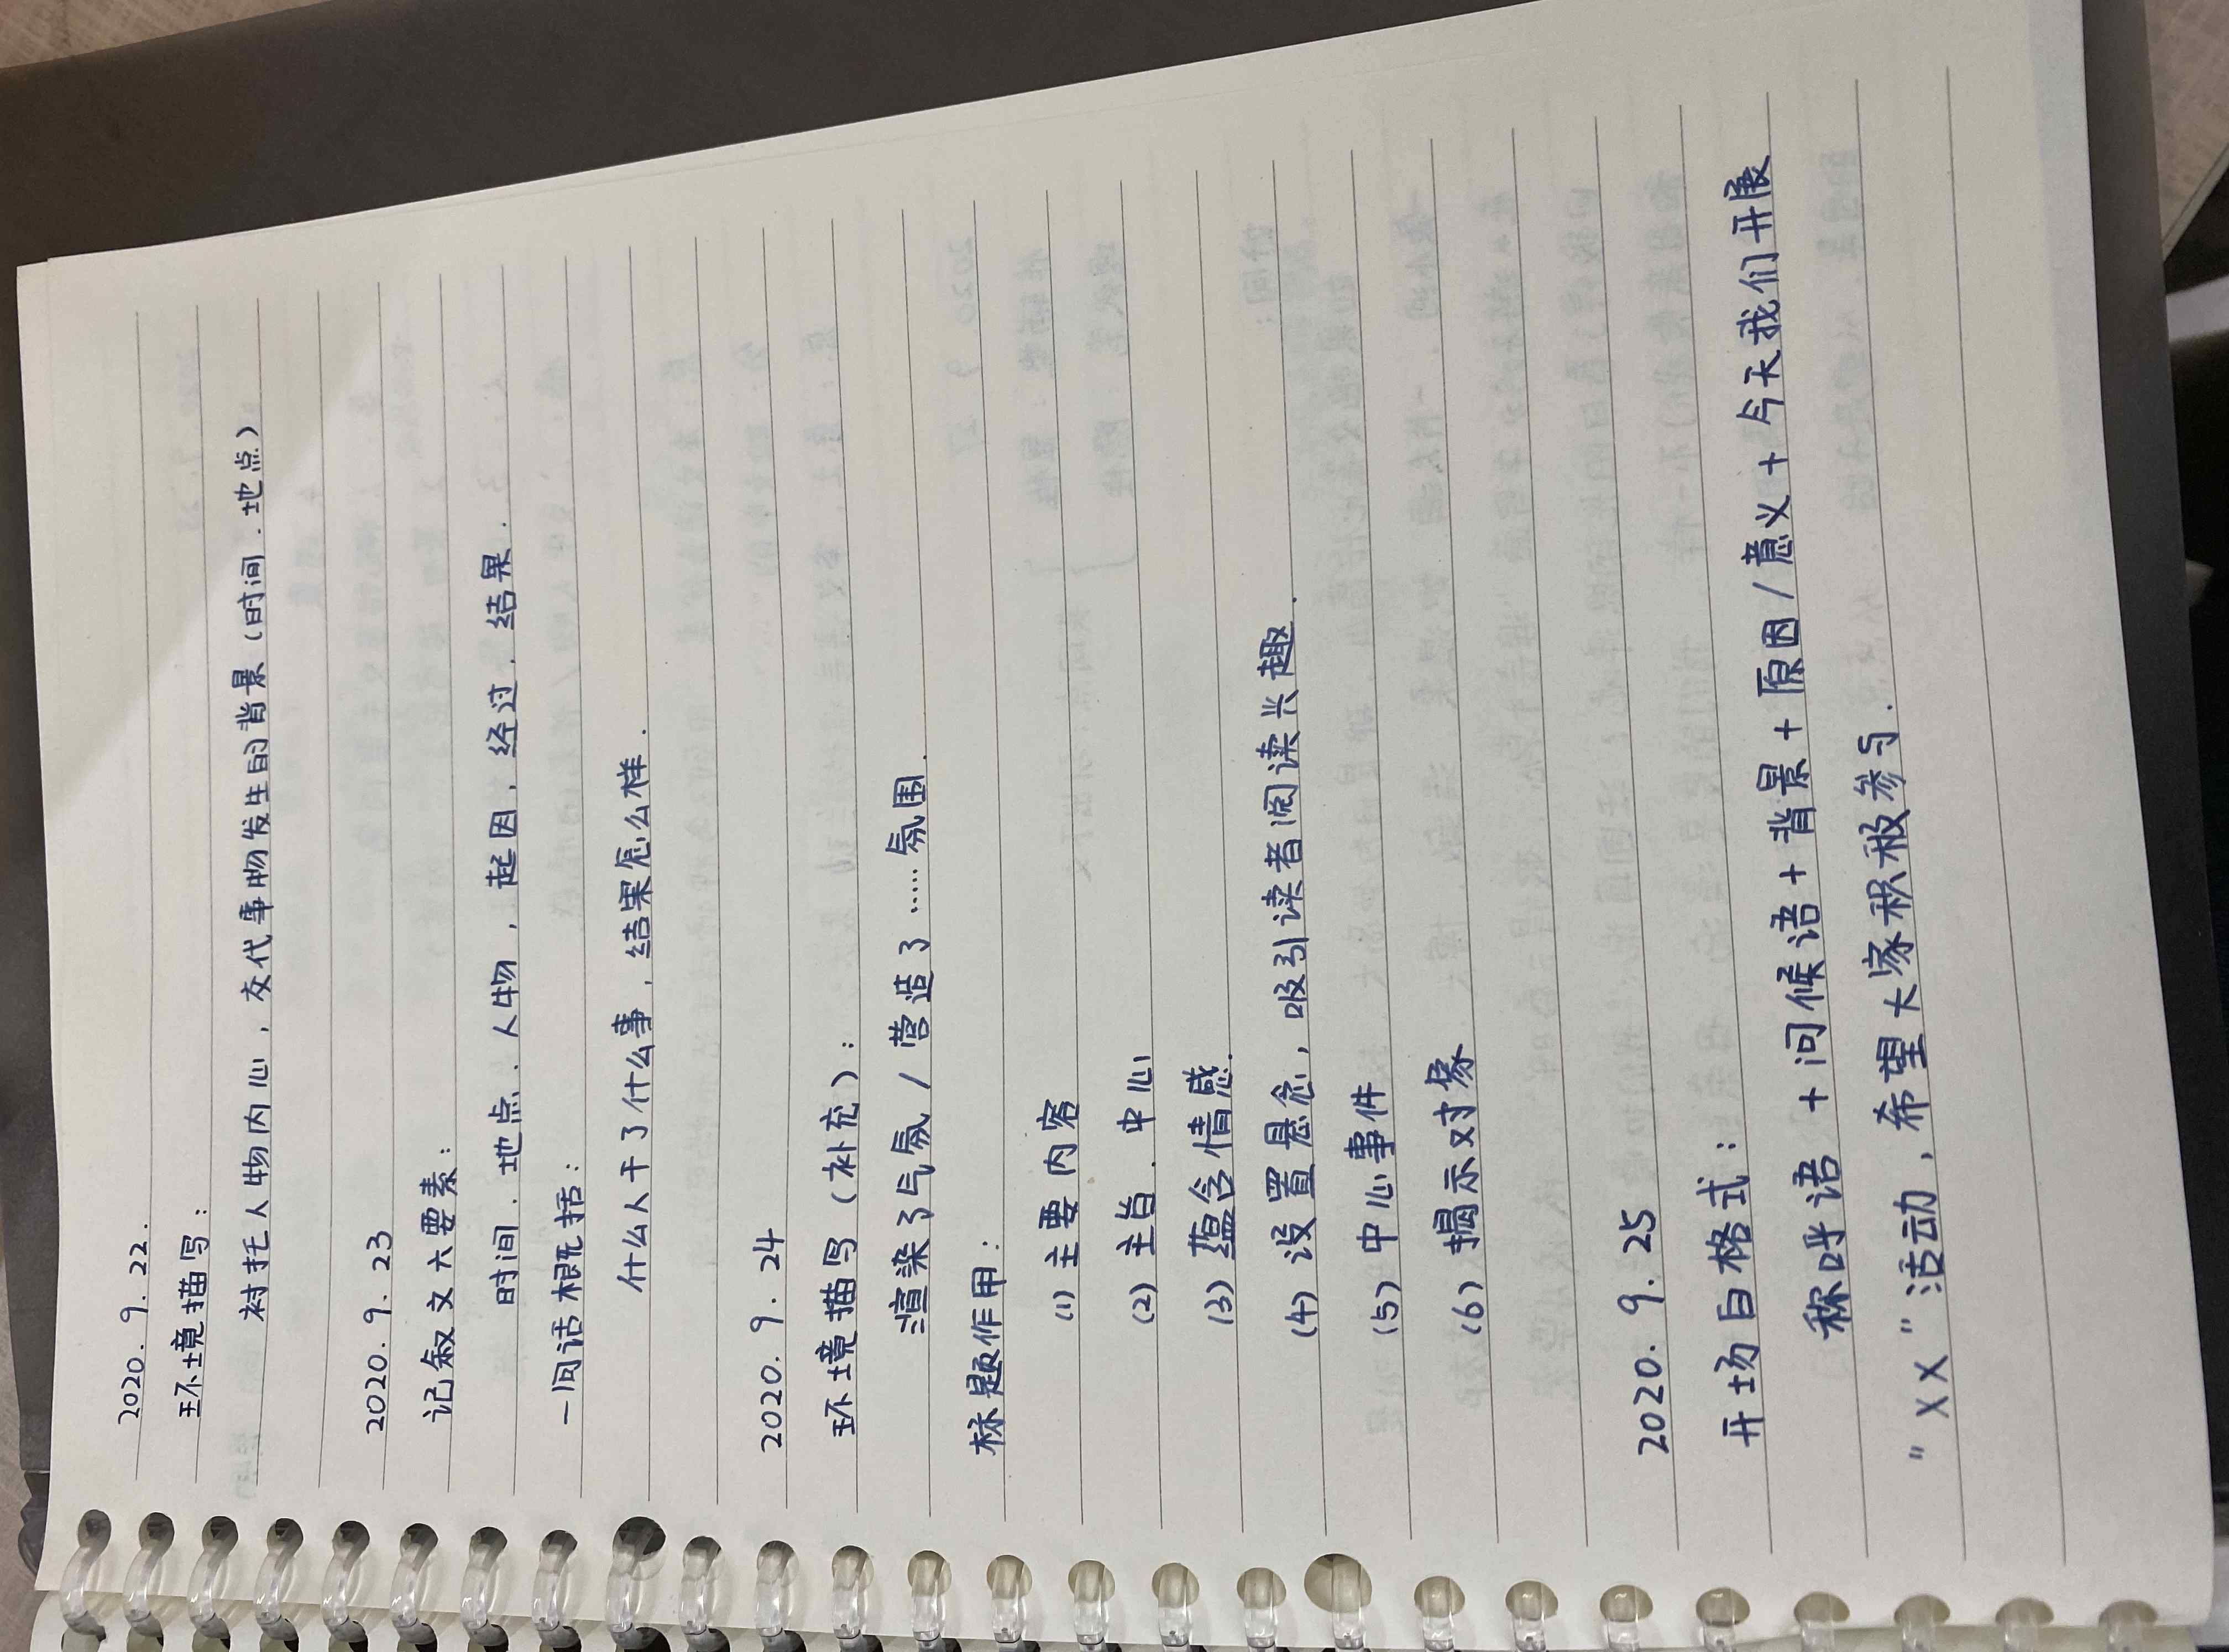 2020.9.22.
环境描写：
衬托人物内心，交代事物发生的背景（时间.地点）
2020.9.23
记叙文六要素：
时间.地点.人物，起因，经过.结果.
一句话概括：
什么人干了什么事，结果怎么样.
2020.9.24
环境描写（补充）：
渲染了气氛/营造了……氛围.
标题作用：
(1)主要内容
(2)主旨.中心
(3)蕴含情感.
(4)设置悬念，吸引读者阅读兴趣.
(5)中心事件
(6)揭示对象
2020.9.25
开场白格式：
称呼语+问候语+背景+原因/意义+今天我们开展
"XX"活动，希望大家积极参与.